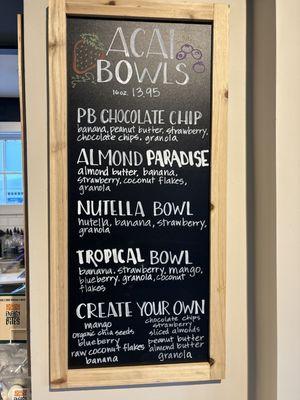 ACAI
BOWLS
16oz. 13.95
PB CHOCOLATE CHIP
banana, peanut butter, strawberry,
chocolate chips, granola
ALMOND PARADISE
almond butter, banana,
strawberry, coconut flakes,
granola
NUTELLA BOWL
nutella, banana, strawberry,
granola
TROPICAL BOWL
banana, strawberry, mango,
blueberry, granola, coconut
flakes
CREATE YOUR OWN
mango
organic chia seeds
blueberry
raw coconut flakes
banana
chocolate chips
strawberry
sliced almonds
peanut butter
almond butter
granola
ENERGY
BITES